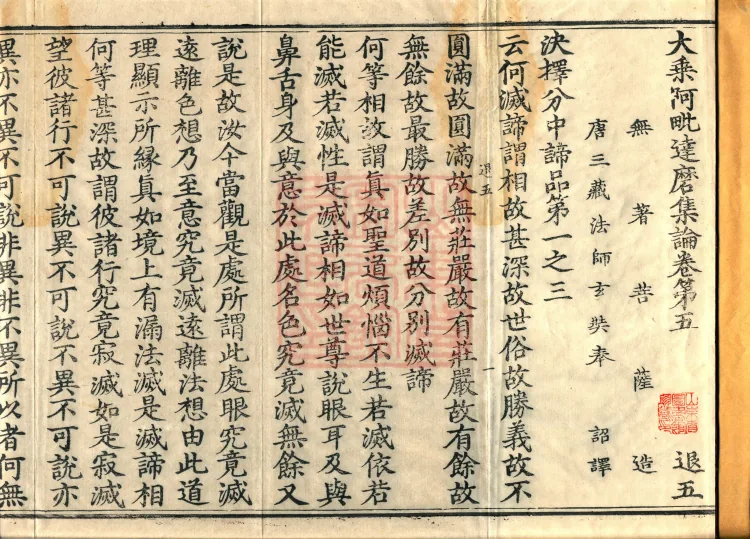 大乘阿毗達磨集論卷第五 退五
無著菩薩造
唐三藏法師玄奘奉 詔譯
決擇分中諦品第一之三
云何滅諦謂相故甚深故世俗故勝義故不
圓滿故圓滿故無莊嚴故有莊嚴故有餘故
退五 一
無餘故最勝故差別故分別滅諦
何等相故謂眞如聖道煩惱不生若滅依若
能滅若滅性是滅諦相如世尊說眼耳及與
鼻舌身及與意於此處名色究竟滅無餘又
說是故汝今當觀是處所謂此處眼究竟滅
遠離色想乃至意究竟滅遠離法想由此道
理顯示所緣眞如境上有漏法滅是滅諦相
何等甚深故謂彼諸行究竟寂滅如是寂滅
望彼諸行不可說異不可說不異不可說亦
異亦不異不可說非異非不異所以者何無